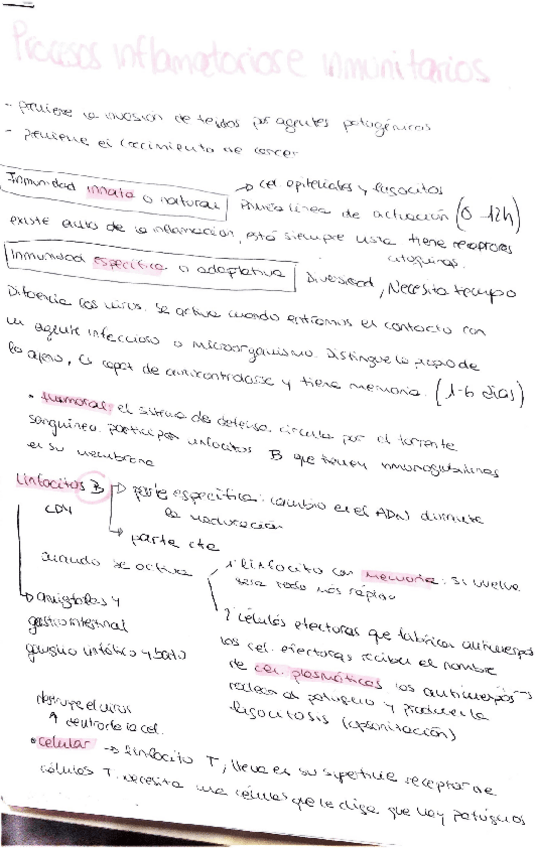 Procesos inflamatorios e inmunitarios
- previene la invasión de tejidos por agentes patogénicos
- previene el crecimiento de cancer
Inmunidad innata o natural → cel. epiteliales y fagocitos
Primera linea de actuación (0-12h)
existe antes de la inflamación, está siempre lista tiene receptores
citoquinas.
Inmunidad especifica o adaptativa Diversidad, Necesita tiempo
Diferencia los virus. Se activa cuando entramos en contacto con
un agente infeccioso o microorganismo. Distingue lo propio de
lo ajeno, es capaz de autocontrolarse y tiene memoria. (1-6 dias)
• Humoral: el sistema de defensa. circula por el torrente
sanguineo. participan linfocitos B que tienen inmunoglobulinas
en su membrana
Linfocitos B → parte especifica: cambio en el ADN durante
la maduración
→ parte cte
CD4
cuando se activa
1 linfocito con memoria: si vuelve
sera todo más rápido
2 células efectoras que fabrican anticuerpos
las cel. efectoras reciben el nombre
de cel. plasmáticas los anticuerpos
rodean al patógeno y producen la
fagocitosis (opsonización)
→ amigdalas y
gastrointestinal
ganglio linfático y bazo
destruye el virus
dentro de la cel.
• celular → linfocito T, lleva en su superficie receptor de
células T. necesita una células que le diga que hay patógenos